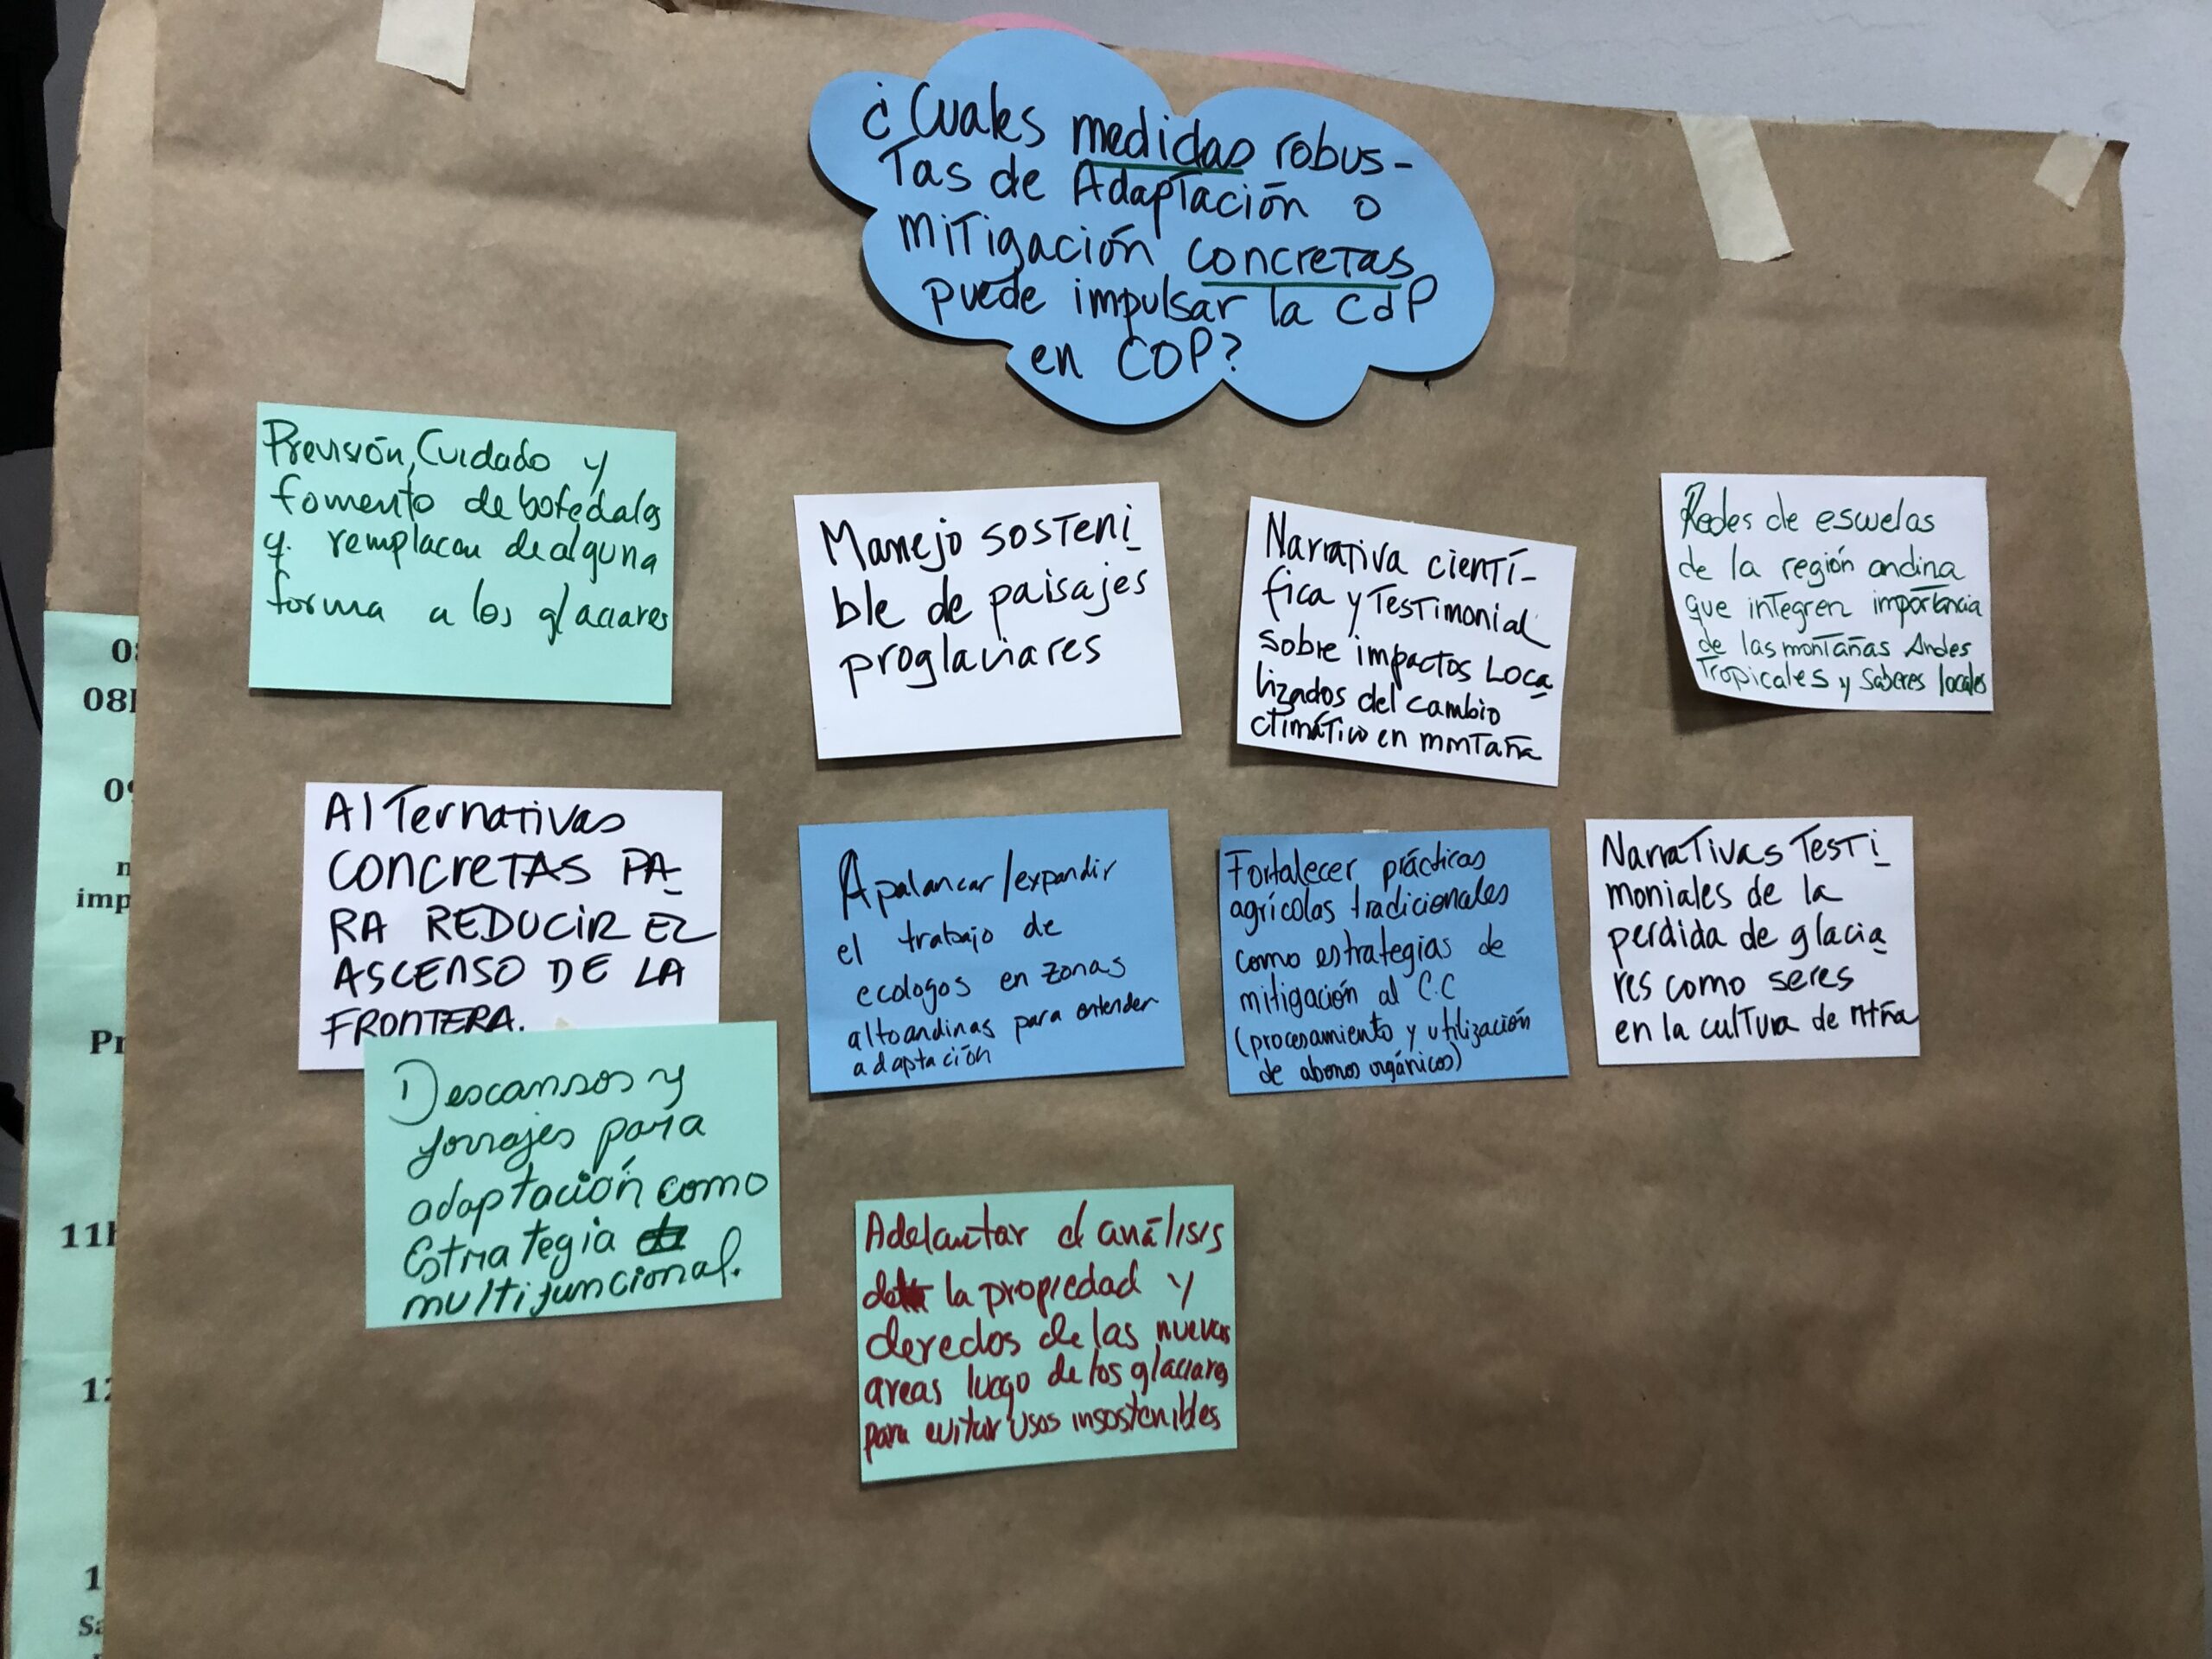 ¿Cuales medidas robus-
Tas de Adaptación o
miTigación concreTas
puede impulsar la CdP
en COP?
Previsión, Cuidado y
fomento de bofedales
q. remplacen de alguna
forma a los glaciares
Manejo sosTeni
ble de paisajes
proglaciares
Narrativa cientí-
fica y TesTimonial
sobre impactos Loca
lizados del cambio
climáTico en monTaña
Redes de escuelas
de la región andina
que integren importancia
de las montañas Andes
Tropicales y Saberes locales
AlTernativas
CONCRETAS PA-
RA REDUCIR EL
ASCENSO DE LA
FRONTERA.
Apalancar/expandir
el trabajo de
ecologos en zonas
altoandinas para entender
adaptación
Fortalecer prácticas
agrícolas tradicionales
como estrategias de
mitigación al C.C
(procesamiento y utilización
de abonos orgánicos)
NarraTivas TesTi
moniales de la
perdida de glacia
res como seres
en la culTura de mtña
Descansos y
forrajes para
adaptación como
Estrategia
multifuncional.
Adelantar el análisis
de la propiedad y
deredos de las nuevas
areas luego de los glaciares
para evitar usos insostenibles
08
09
imp
Pr
11h
12
1
Sa